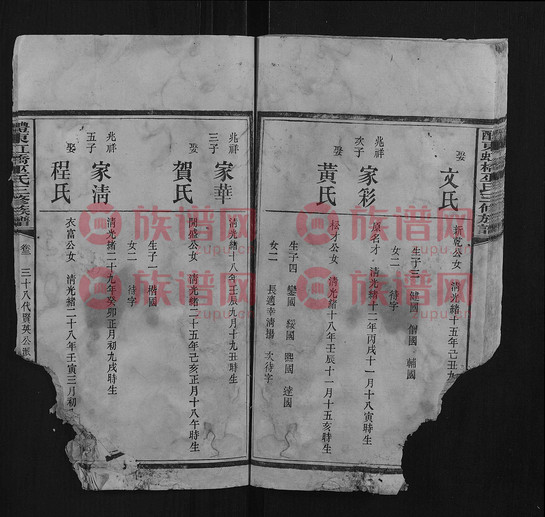 文氏
娶
新乾公女 清光緒十五年己丑九
生子三 健國 僧國 輔國
女二 待字
兆祥
次子
家彩
原名才 清光緒十二年丙戌十一月十八寅時生
娶
黃氏
松才公女 清光緒十八年壬辰十一月十五亥時生
生子四 變國 綏國 興國 達國
女二 長適幸清攝 次待字
兆祥
三子
家華
清光緒十八年壬辰九月十九丑時生
娶
賀氏
開盛公女 清光緒二十五年己亥正月十八午時生
生子一 楷國
女二 待字
兆祥
五子
家清
清光緒二十九年癸卯正月初九戌時生
娶
程氏
衣富公女 清光緒二十八年壬寅三月初
醴東虹橋巫氏三修族譜
卷三 三十八代賢英公派
族谱网
zupu.cn